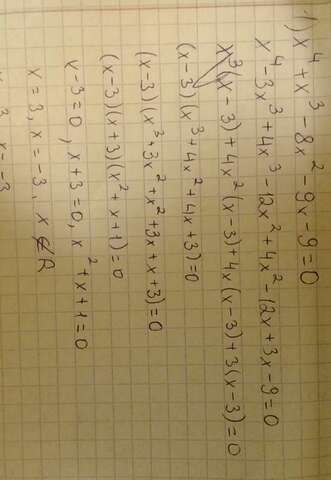 1) x⁴+x³-8x²-9x-9=0
x⁴-3x³+4x³-12x²+4x²-12x+3x-9=0
x³(x-3)+4x²(x-3)+4x(x-3)+3(x-3)=0
(x-3)(x³+4x²+4x+3)=0
(x-3)(x³+3x²+x²+3x+x+3)=0
(x-3)(x+3)(x²+x+1)=0
x-3=0, x+3=0, x²+x+1=0
x=3, x=-3, x∉R
x=-3